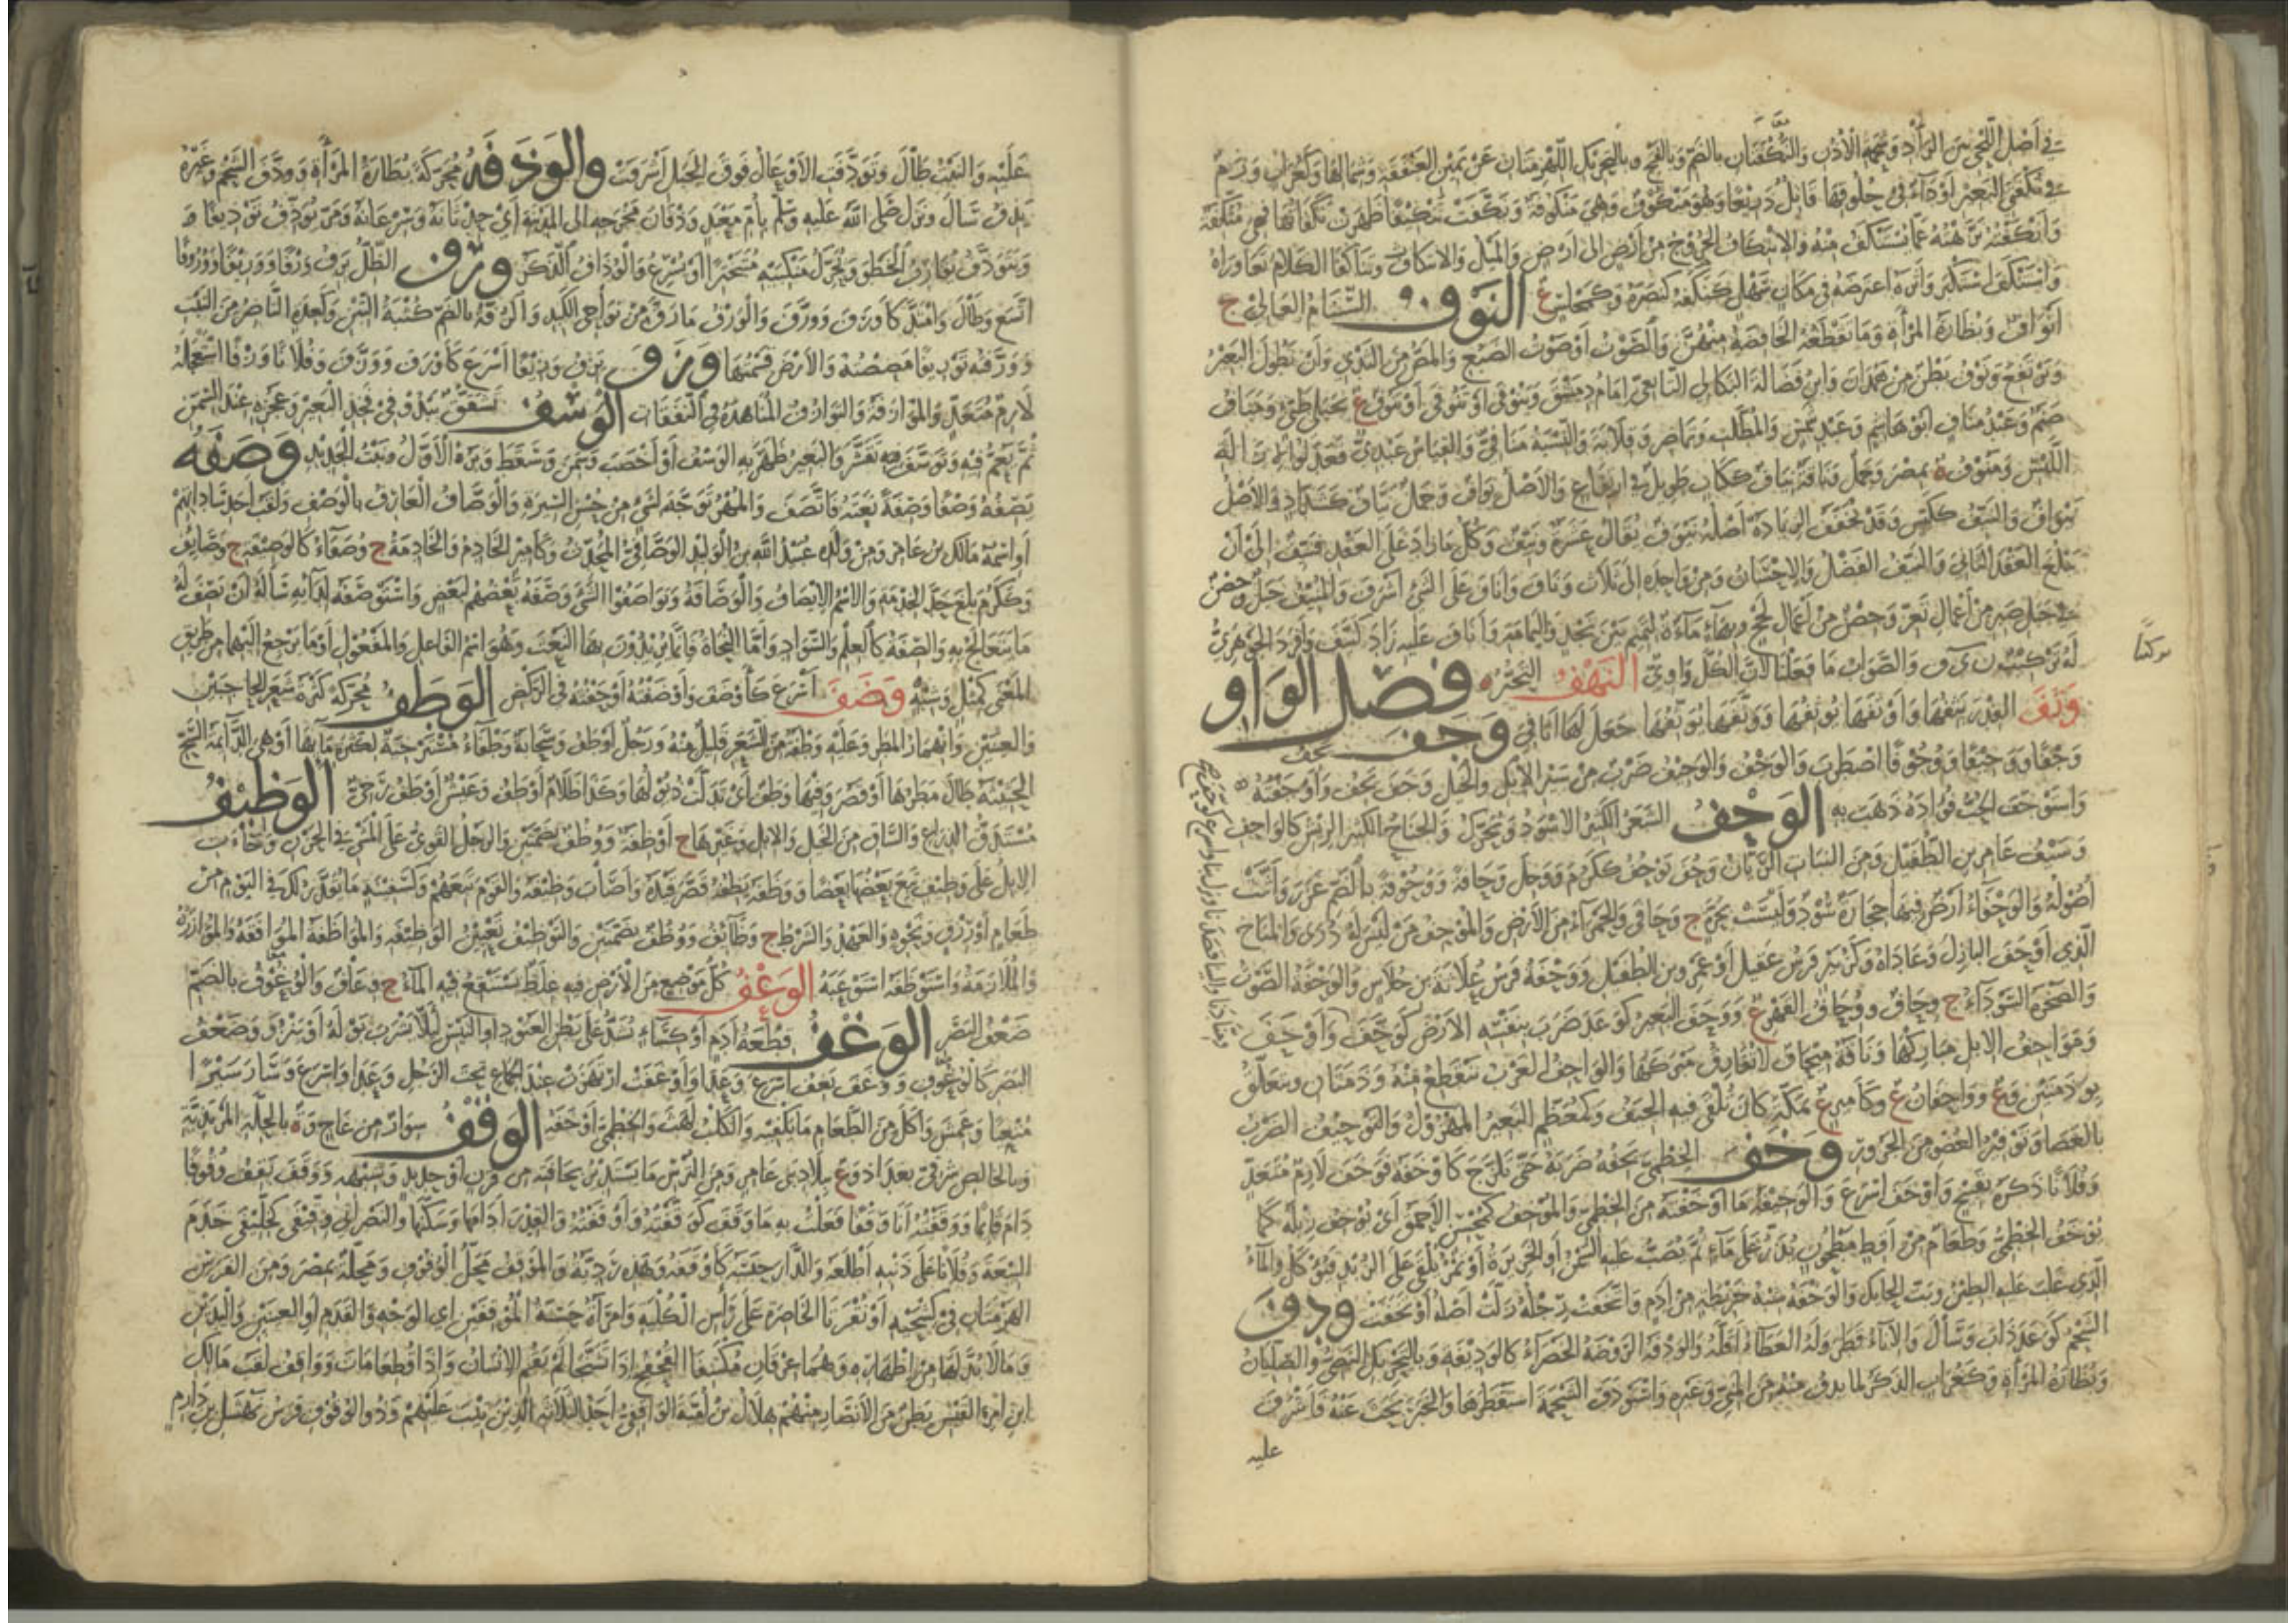 في أصل اللحي بين الرأد وشحمة الأذن والنكفتان بالضم وبالفتح وبالتحريك اللهزمتان عن يمين العنفقة وشمالها وكغراب ورم
في نكفتي البعير أو داء في حلوقها قاتل ذريعا وهو منكوف وهي منكوفة ونكفت تنكيفا ظهرت نكفاتها فهي منكفة
وأنكفته نزهته عما يستنكف منه والانتكاف الخروج من أرض إلى أرض والميل والانتكاث وتناكفا الكلام تعاوراه
واستنكف استكبر وأثره اعترضه في مكان سهل كنكفه كنصره ع النوف السنام العالي ج
أنواف وبظارة المرأة وما تقطعه الخافضة منهن والصوت أو صوت الضبع والمص من الثدي وأن يطول البعير
ويرتفع ونوف بطن من همدان وابن فضالة البكالي التابعي إمام دمشق وينوفى أو تنوفى أو تنوف ع بجبلي طيئ ومناف
صنم وعبد مناف أبو هاشم وعبد شمس والمطلب وتماضر وقلابة والنسبة منافي والقياس عبدي فعدلوا لإزالة
اللبس ومنوف ة بمصر وجمل وناقة نياف ككتاب طويل في ارتفاع والأصل نواف وجمل نياف كشداد والأصل
نيواف والنيف ككيس وقد يخفف الزيادة أصله نيوف يقال عشرة ونيف وكل ما زاد على العقد فنيف إلى أن
يبلغ العقد الثاني والنيف الفضل والإحسان ومن واحدة إلى ثلاث وناف وأناف على الشيء أشرف والمنيف جبل وحصن
في جبل صبر من أعمال تعز وحصن من أعمال لحج وبهاء ماءة لتميم بين نجد واليمامة وأناف عليه زاد كنيف وأفرد الجوهري
له تركيب ن ي ف والصواب ما فعلنا لأن الكل واوي النهف التحير فصل الواو
وثف القدر يثفها وأوثفها يوثفها ووثفها يوثفها جعل لها أثافي وجف يجف
وجفا ووجيفا ووجوفا اضطرب والوجف والوجيف ضرب من سير الإبل والخيل وجف يجف وأوجفته
واستوجف الحب فؤاده ذهب به الوحف الشعر الكثير الأسود ويحرك والجناح الكثير الريش كالواحف
وسيف عامر بن الطفيل ومن النبات الريان وحف توحف ككرم ووجل وحافة ووحوفة بالضم غزر وأثت
أصوله والوحفاء أرض فيها حجارة سود وليست بحرة ج وحافى والحمراء من الأرض والموحف من ليس له ذرى والمناخ
الذي أوحف البازل وعاداه وكزبير فرس عقيل أو عمرو بن الطفيل ووحفة فرس علاثة بن جلاس والوحفة الصوت
والصخرة السوداء ج وحاف ووحاف القهر ع ووحف البعير كوعد ضرب بنفسه الأرض كوحف وأوحف
ومواحف الإبل مباركها وناقة ميحاف لا تفارق مبركها والواحف الغرب تنقطع منه وذمتان وتتعلق
بوذمتين وع وواحفان ع وكأمير ع بمكة كان تلقى فيه الجيف وكمعظم البعير المهزول والتوحيف الضرب
بالعصا وتوفير العضو من الجزور وخف الخطمي يخفه ضربه حتى تلزج كأوخفه فوخف لازم متعد
وفلانا ذكره بقبيح وأوخف أسرع والوخيفة ما أوخفته من الخطمي والموخف كمحسن الأحمق أي يوخف زبله كما
يوخف الخطمي وطعام من أقط مطحون يذر على ماء ثم يصب عليه السمن أو الخزيرة أو تمر يلقى على الزبد فيؤكل والماء
الذي غلب عليه الطين وبت الحائك والوخفة شبه خريطة من أدم واتخفت رجله زلت أصله أوتخفت ودف
الشحم كوعد ذاب وسال والإناء قطر وله العطاء أقله والودفة الروضة الخضراء كالوديفة وبالتحريك النصي والصليان
وبظارة المرأة وكغراب الذكر لما يدف منه من المني وغيره واستودف الشحمة استقطرها والخبر بحث عنه فأشرف
عليه
عليه والنبت طال وتودفت الأوعال فوق الجبل أشرفت والوذفة محركة بظارة المرأة ووذف الشحم وغيره
يذف سال ونزل صلى الله عليه وسلم بأم معبد وذفان مخرجه إلى المدينة أي حدثانه وسرعانه ومر يوذف توذيفا و
ويتوذف يقارب الخطو ويحرك منكبيه متبخترا أو يسرع والوذاف الذكر ورف الظل يرف ورفا ووريفا ووروفا
اتسع وطال وامتد كأورف وورف والورف ما رق من نواحي الكبد والرفة بالضم كثبة التبن وكعدة الناضر من النبت
وورفته توريفا مصصته والأرض قسمتها وزف يزف وزيفا أسرع كأوزف ووزف وفلانا وزفا استعجله
لازم متعد والموازفة والتوازف المناهدة في النفقات الوسف تشقق يبدو في فخذ البعير وعجزه عند السمن
ثم يعم فيه وتوسف تقشر والبعير ظهر به الوسف أو أخصب وسمن وسقط وبره الأول ونبت الجديد وصفه
يصفه وصفا وصفة نعته فاتصف والمهر توجه لشيء من حسن السيرة والوصاف العارف بالوصف ولقب أحد ساداتهم
أو اسمه مالك بن عامر ومن ولده عبيد الله بن الوليد الوصافي المحدث وكأمير الخادم والخادمة ج وصفاء كالوصيفة ج وصائف
وككرم بلغ حد الخدمة والاسم الإيصاف والوصافة وتواصفوا الشيء وصفه بعضهم لبعض واستوصفه لدائه سأله أن يصف له
ما يتعالج به والصفة كالعلم والسواد وأما النحاة فإنما يريدون بها النعت وهو اسم الفاعل والمفعول أو ما يرجع إليهما من طريق
المعنى كمثل وشبه وضف أسرع كأوضف وأوضفته أوجفته في الركض الوطف محركة كثرة شعر الحاجبين
والعينين وانهمار المطر وعليه وطفة من الشعر قليل منه ورجل أوطف وسحابة وطفاء مسترخية لكثرة مائها أو هي الدائمة السح
الحثيثة طال مطرها أو قصر وفيها وطف أي تدلت ذيولها وكذا ظلام أوطف وعيش أوطف رخي الوظيف
مستدق الذراع والساق من الخيل والإبل وغيرها ج أوظفة ووظف بضمتين والرجل القوي على المشي في الحزن وجاءت
الإبل على وظيف تبع بعضها بعضا ووظفه يظفه قصر قيده وأصاب وظيفه والقوم تبعهم وكسفينة ما يقدر لك في اليوم من
طعام أو رزق ونحوه والعهد والشرط ج وظائف ووظف بضمتين والتوظيف تعيين الوظيفة والمواظفة الموافقة والموازرة
والملازمة واستوظفه استوعبه الوعف كل موضع من الأرض فيه غلظ يستنقع فيه الماء ج وعاف والوعوف بالضم
ضعف البصر الوغف قطعة أدم أو كساء تشد على بطن العتود أو التيس لئلا يشرب بوله أو ينزو وضعف
البصر كالوغوف ووغف يغف أسرع وعدا وأوغفت ارتهزت عند الجماع تحت الرجل وعدا وأسرع وسار سيرا
متعبا وعمش وأكل من الطعام ما يكفيه والكلب لهث والخطمي أوخفه الوقف سوار من عاج وة بالحلة المزيدية
وبالخالص شرقي بغداد وع ببلاد بني عامر ومن الترس ما يستدير بحافته من قرن أو حديد وشبهه ووقف يقف وقوفا
دام قائما ووقفته أنا وقفا فعلت به ما وقف كوقفته وأوقفته والقدر أدامها وسكنها والنصراني وقيفى كخليفى خدم
البيعة وفلانا على ذنبه أطلعه والدار حبسه كأوقفه وهذه ردية والموقف محل الوقوف ومحلة بمصر ومن الفرس
الهزمتان في كشحيه أو نقرتا الخاصرة على رأس الكلية وامرأة حسنة الموقفين أي الوجه والقدم أو العينين واليدين
وما لا بد لها من إظهاره وهما عرقان مكتنفا القحقح إذا تشنجا لم يقم الإنسان وإذا قطعا مات وواقف لقب مالك
ابن امرئ القيس بطن من الأنصار منهم هلال بن أمية الواقفي أحد الثلاثة الذين تيب عليهم وذو الوقوف فرس نهشل بن دارم